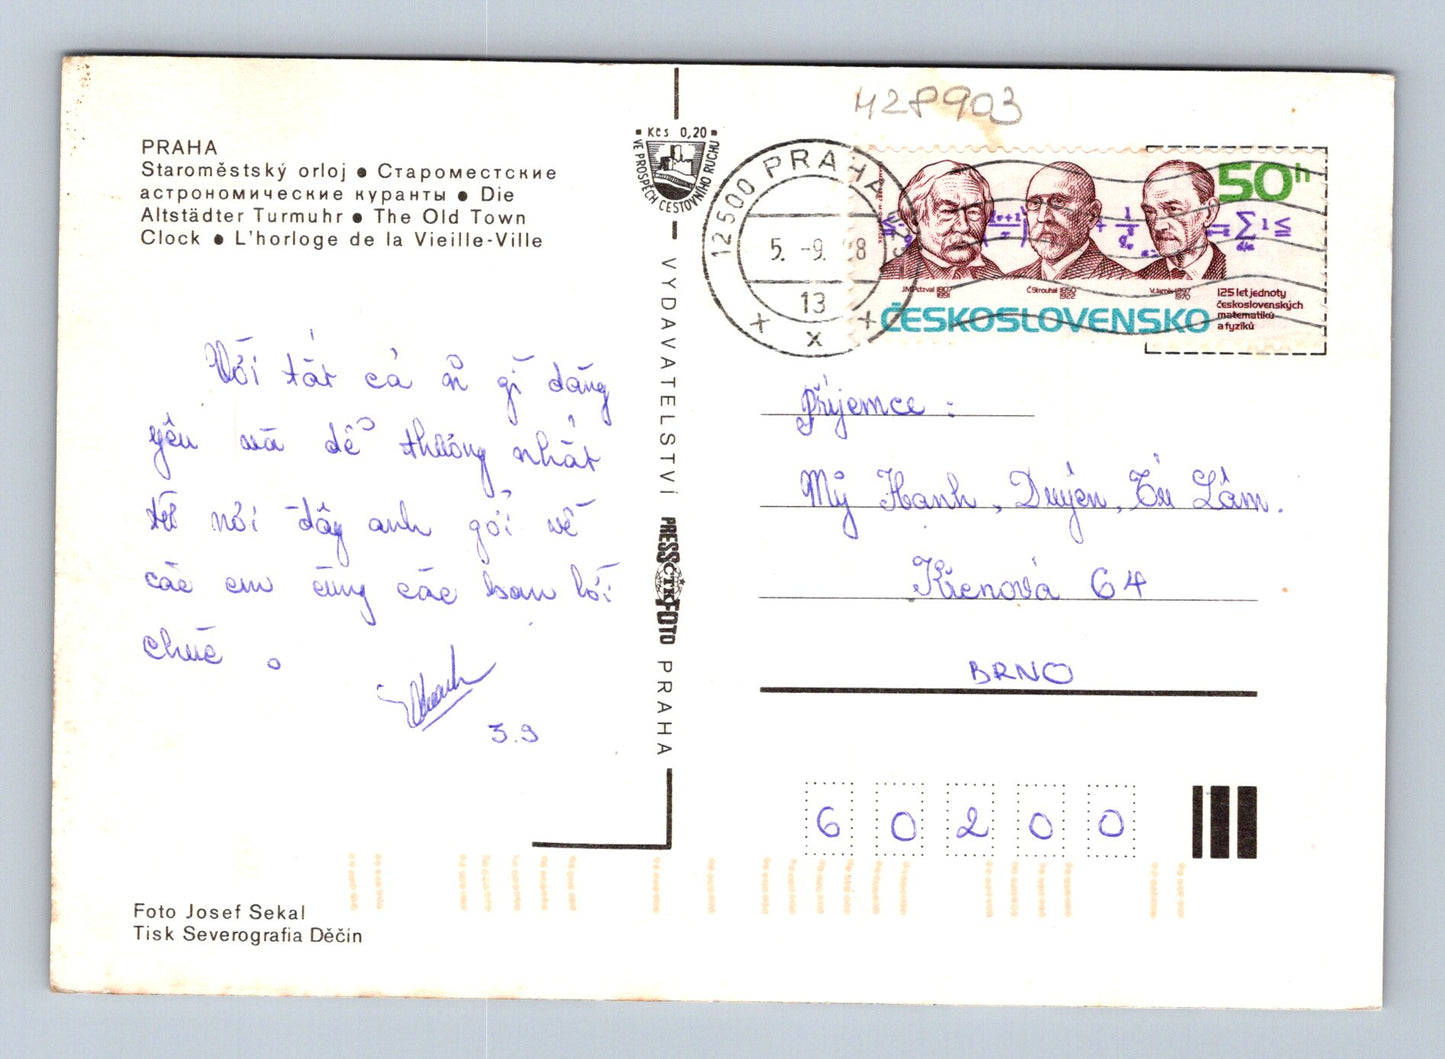 PRAHA
Staroměstský orloj ● Староместские
астрономические куранты ● Die
Altstädter Turmuhr ● The Old Town
Clock ● L'horloge de la Vieille-Ville
Với tất cả gì đáng
yêu và dể thương nhất
nơi đây anh gởi về
các em cùng các bạn lời
chúc.
3.9
Foto Josef Sekal
Tisk Severografia Děčín
Kčs 0,20
VE PROSPĚCH CESTOVNÍHO RUCHU
VYDAVATELSTVÍ PRESSFOTO PRAHA
ČTK
428903
12500 PRAHA
5. -9. 88
13
x
50h
J.M.Petzval 1807
1891
Č.Strouhal 1850
1922
V.Jarník 1897
1970
125 let jednoty
československých
matematiků
a fyziků
ČESKOSLOVENSKO
Příjemce :
Mỹ Hanh, Duyên, Tú Lâm.
Křenová 64
BRNO
60200